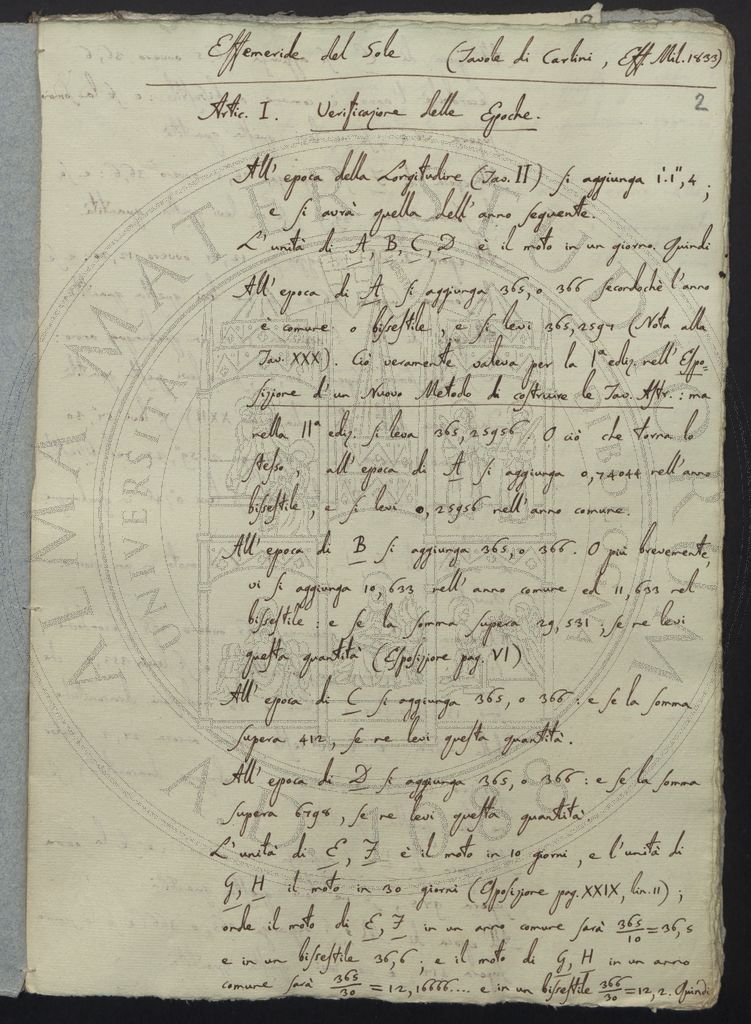 Effemeride del Sole (Tavole di Carlini, Eff. Mil. 1833)
2
Artic. I. Verificazione delle Epoche.
All' epoca della Longitudine (Tav. II) si aggiunga 1'.1",4;
e si avrà quella dell' anno seguente.
L'unità di A, B, C, D è il moto in un giorno. Quindi
All' epoca di A si aggiunga 365, o 366 secondochè l'anno
è comune o bissestile, e si levi 365,2591 (Nota alla
Tav. XXX). Ciò veramente valeva per la 1ª ediz. nell' Espo-
sizione d'un Nuovo Metodo di costruire le Tav. Astr.: ma
nella IIª ediz. si leva 365,25956. O ciò che torna lo
stesso, all' epoca di A si aggiunga 0,74044 nell' anno
bissestile, e si levi 0,25956 nell' anno comune.
All' epoca di B si aggiunga 365, o 366. O più brevemente,
vi si aggiunga 10,633 nell' anno comune ed 11,633 nel
bissestile: e se la somma supera 29,531, se ne levi
questa quantità (Esposizione pag. VI)
All' epoca di C si aggiunga 365, o 366: e se la somma
supera 412, se ne levi questa quantità.
All' epoca di D si aggiunga 365, o 366: e se la somma
supera 6798, se ne levi questa quantità.
L'unità di E, F è il moto in 10 giorni, e l'unità di
G, H il moto in 30 giorni (Esposizione pag. XXIX, lin. 11);
onde il moto di E, F in un anno comune sarà 365/10 = 36,5
e in un bissestile 36,6; e il moto di G, H in un anno
comune sarà 365/30 = 12,16666.... e in un bissestile 366/30 = 12,2. Quindi
ALMA MATER STUDIORUM
UNIVERSITA
A.D. 1088